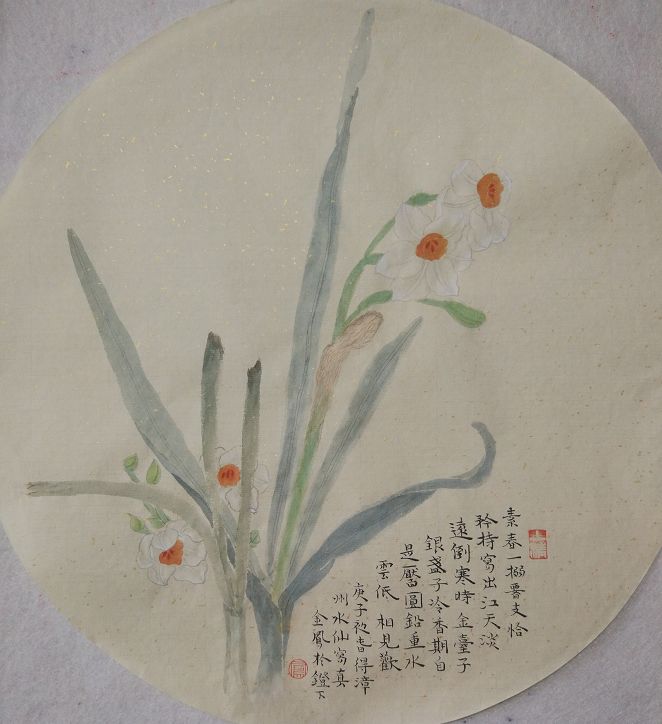 素春一搦暑支恰
矜持寫出江天淡
遠倒寒時金臺子
銀盞子冷香期自
是靨圓鉛重水
雲低 相見歡
庚子初春得漳
州水仙寫真
金鳳於鐙下